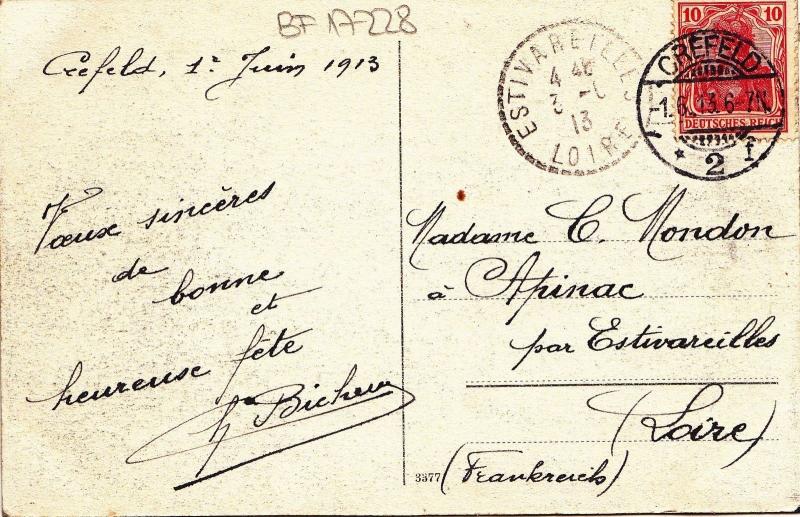 BF 17-228
Crefeld, 1er Juin 1913
Vœux sincères
de
bonne
et
heureuse fête
Bicheux
ESTIVAREILLES
4 46
3 -6
13
LOIRE
10 10
DEUTSCHES REICH
CREFELD
-1.6.13.6-7N.
* 2 f
Madame C. Mondon
à Apinac
par Estivareilles
(Loire)
(Frankreich)
3377